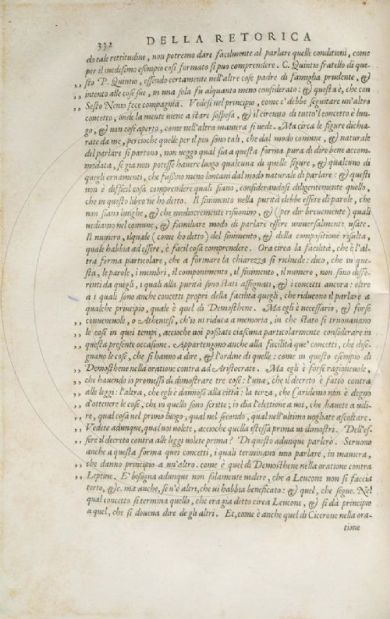 332 DELLA RETORICA
do tale rettitudine, non potremo dare facilmente al parlare quelle conditioni, come
per il medesimo esempio così formato si può comprendere. C. Quintio fratello di que-
,, sto P. Quintio, essendo certamente nell'altre cose padre di famiglia prudente, &
,, intento alle cose sue, in una sola fu alquanto meno considerato; & questa è, che con
,, Sesto Nevio fece compagnia. Vedesi nel principio, come c'debbe seguitare un'altro
concetto, onde la mente viene a stare sospesa, & il circuito di tutto'l concetto è lun-
go, & non così aperto, come nell'altra maniera si vede. Ma circa le figure dichia-
rate da me, percioche quelle per il più sono tali, che dal modo comune, & naturale
del parlare si partono, non veggo qual sia a questa forma pura di dire bene accom-
modata, se già non potesse havere luogo qualcuna di quelle figure, & qualcuno di
quegli ornamenti, che fussino meno lontani dal modo naturale di parlare: & questi
non è difficil cosa comprendere quali siano, considerandosi diligentemente quello,
che in questo libro ne ho detto. Il finimento nella purità debbe essere di parole, che
non siano lunghe, & che mediocremente risuonino, & (per dir brevemente) quali
vediamo nel comune, & familiare modo di parlare essere universalmente, usate.
Il numero, ilquale (come ho detto) del finimento, & della compositione risulta,
quale habbia ad essere, è facil cosa comprendere. Ora circa la facilità, che è l'al-
tra forma particolare, che a formare la chiarezza si richiede: dico, che in que-
sta, le parole, i membri, il componimento, il finimento, il numero, non sono diffe-
renti da quegli, i quali alla purità sono stati assegnati, & i concetti ancora: oltre
a i quali sono anche concetti propri della facilità quegli, che riducono il parlare a
qualche principio, quale è quel di Demosthene. Ma egli è necessario, & forse
,, convenevole, o Atheniesi, ch'io vi riduca a memoria, in che stato si trovavano
,, le cose in quei tempi, accioche voi possiate ciascuna particolarmente considerare in
,, questa presente occasione. Appartengono anche alla facilità que' concetti, che dise-
gnano le cose, che si hanno a dire, & l'ordine di quelle: come in questo esempio di
,, Demosthene nella oratione contra ad Aristocrate. Ma egli è forse ragionevole,
,, che havendo io promesso di dimostrare tre cose: l'una, che il decreto è fatto contra
,, alle leggi: l'altra, che egli è dannoso alla città: la terza, che Caridemo non è degno
,, d'ottenere le cose, che in quello sono scritte; io dia l'elettione a voi, che havete a udi-
,, re, qual cosa nel primo luogo, qual nel secondo, qual nell'ultimo vogliate ascoltare.
,, Vedete adunque, qual voi volete, accioche quella istessa prima io dimostri. Dell'es-
,, sere il decreto contra alle leggi volete prima? Di questo adunque parlerò. Servono
anche a questa forma quei concetti, i quali terminano uno parlare, in maniera,
,, che danno principio a un'altro. come è quel di Demosthene nella oratione contra
,, Leptine. E' bisogna adunque non solamente vedere, che a Leucone non si faccia
,, torto, &c. ma anche, se n'è altro, che vi habbia beneficato: & quel, che segue. Nel
qual concetto si termina quello, che era già ditto circa Leucone, & si dà principio
a quel, che si doveva dire de gli altri. Et, come è anche quel di Cicerone nella ora-
tione